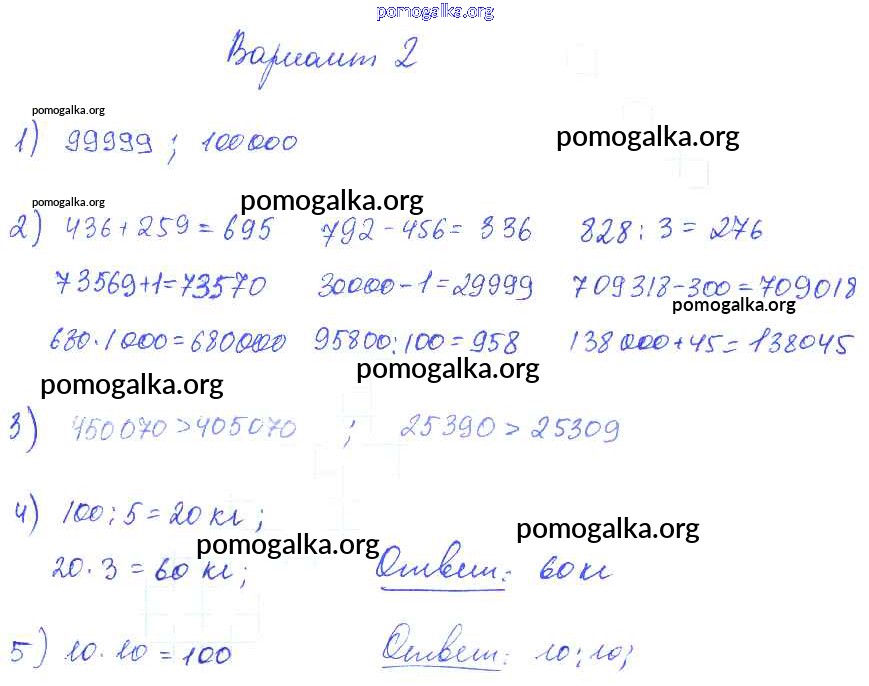 pomogalka.org
Вариант 2
pomogalka.org
1) 99999 ; 100000
pomogalka.org
pomogalka.org
pomogalka.org
2) 436 + 259 = 695 792 - 456 = 336 828 : 3 = 276
73569+1=73570 30000-1=29999 709318-300=709018
pomogalka.org
680·1000=680000 95800:100=958 138000+45=138045
pomogalka.org
pomogalka.org
3) 450070 > 405070 ; 25390 > 25309
4) 100 : 5 = 20 кг ;
pomogalka.org
pomogalka.org
20 · 3 = 60 кг ; Ответ: 60 кг
5) 10 · 10 = 100 Ответ: 10; 10;